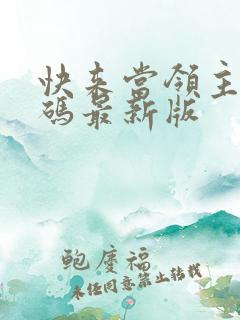 快来當領主
碼最新版
鲍慶福
未经同意禁止转载